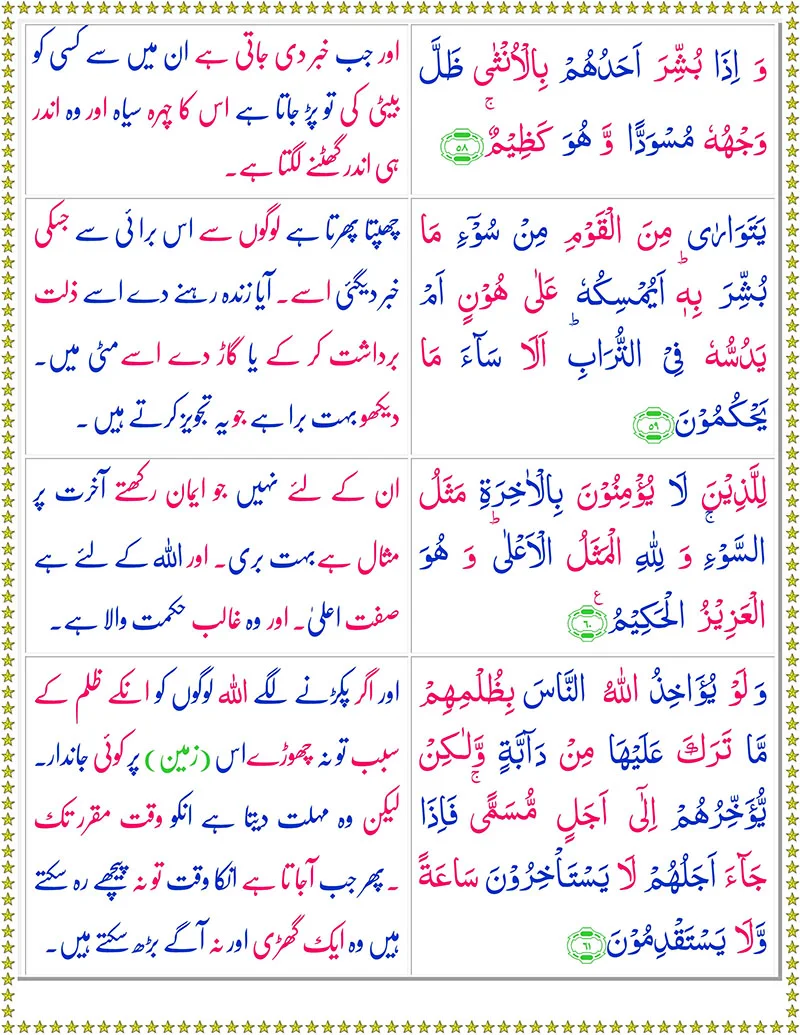 وَ اِذَا بُشِّرَ اَحَدُهُمْ بِالْاُنْثٰى ظَلَّ
وَجْهُهٗ مُسْوَدًّا وَّ هُوَ كَظِیْمٌۚ ﴿۵۸﴾
اور جب خبر دی جاتی ہے ان میں سے کسی کو
بیٹی کی تو پڑ جاتا ہے اس کا چہرہ سیاہ اور وہ اندر
ہی اندر گھٹنے لگتا ہے۔
یَتَوَارٰى مِنَ الْقَوْمِ مِنْ سُوْٓءِ مَا
بُشِّرَ بِهٖؕ اَیُمْسِكُهٗ عَلٰى هُوْنٍ اَمْ
یَدُسُّهٗ فِی التُّرَابِؕ اَلَا سَآءَ مَا
یَحْكُمُوْنَ ﴿۵۹﴾
چھپتا پھرتا ہے لوگوں سے اس برائی سے جسکی
خبر دیگئی اسے۔ آیا زندہ رہنے دے اسے ذلت
برداشت کر کے یا گاڑ دے اسے مٹی میں۔
دیکھو بہت برا ہے جو یہ تجویز کرتے ہیں۔
لِلَّذِیْنَ لَا یُؤْمِنُوْنَ بِالْاٰخِرَةِ مَثَلُ
السَّوْءِۚ وَ لِلّٰهِ الْمَثَلُ الْاَعْلٰىؕ وَ هُوَ
الْعَزِیْزُ الْحَكِیْمُ۠ ﴿۶۰﴾ ع
ان کے لئے نہیں جو ایمان رکھتے آخرت پر
مثال ہے بہت بری۔ اور اللہ کے لئے ہے
صفت اعلیٰ۔ اور وہ غالب حکمت والا ہے۔
وَ لَوْ یُؤَاخِذُ اللّٰهُ النَّاسَ بِظُلْمِهِمْ
مَّا تَرَكَ عَلَیْهَا مِنْ دَآبَّةٍ وَّ لٰكِنْ
یُّؤَخِّرُهُمْ اِلٰۤى اَجَلٍ مُّسَمًّىۚ فَاِذَا
جَآءَ اَجَلُهُمْ لَا یَسْتَاْخِرُوْنَ سَاعَةً
وَّ لَا یَسْتَقْدِمُوْنَ ﴿۶۱﴾
اور اگر پکڑنے لگے اللہ لوگوں کو انکے ظلم کے
سبب تو نہ چھوڑے اس (زمین) پر کوئی جاندار۔
لیکن وہ مہلت دیتا ہے انکو وقت مقرر تک
۔ پھر جب آجاتا ہے انکا وقت تو نہ پیچھے رہ سکتے
ہیں وہ ایک گھڑی اور نہ آگے بڑھ سکتے ہیں۔